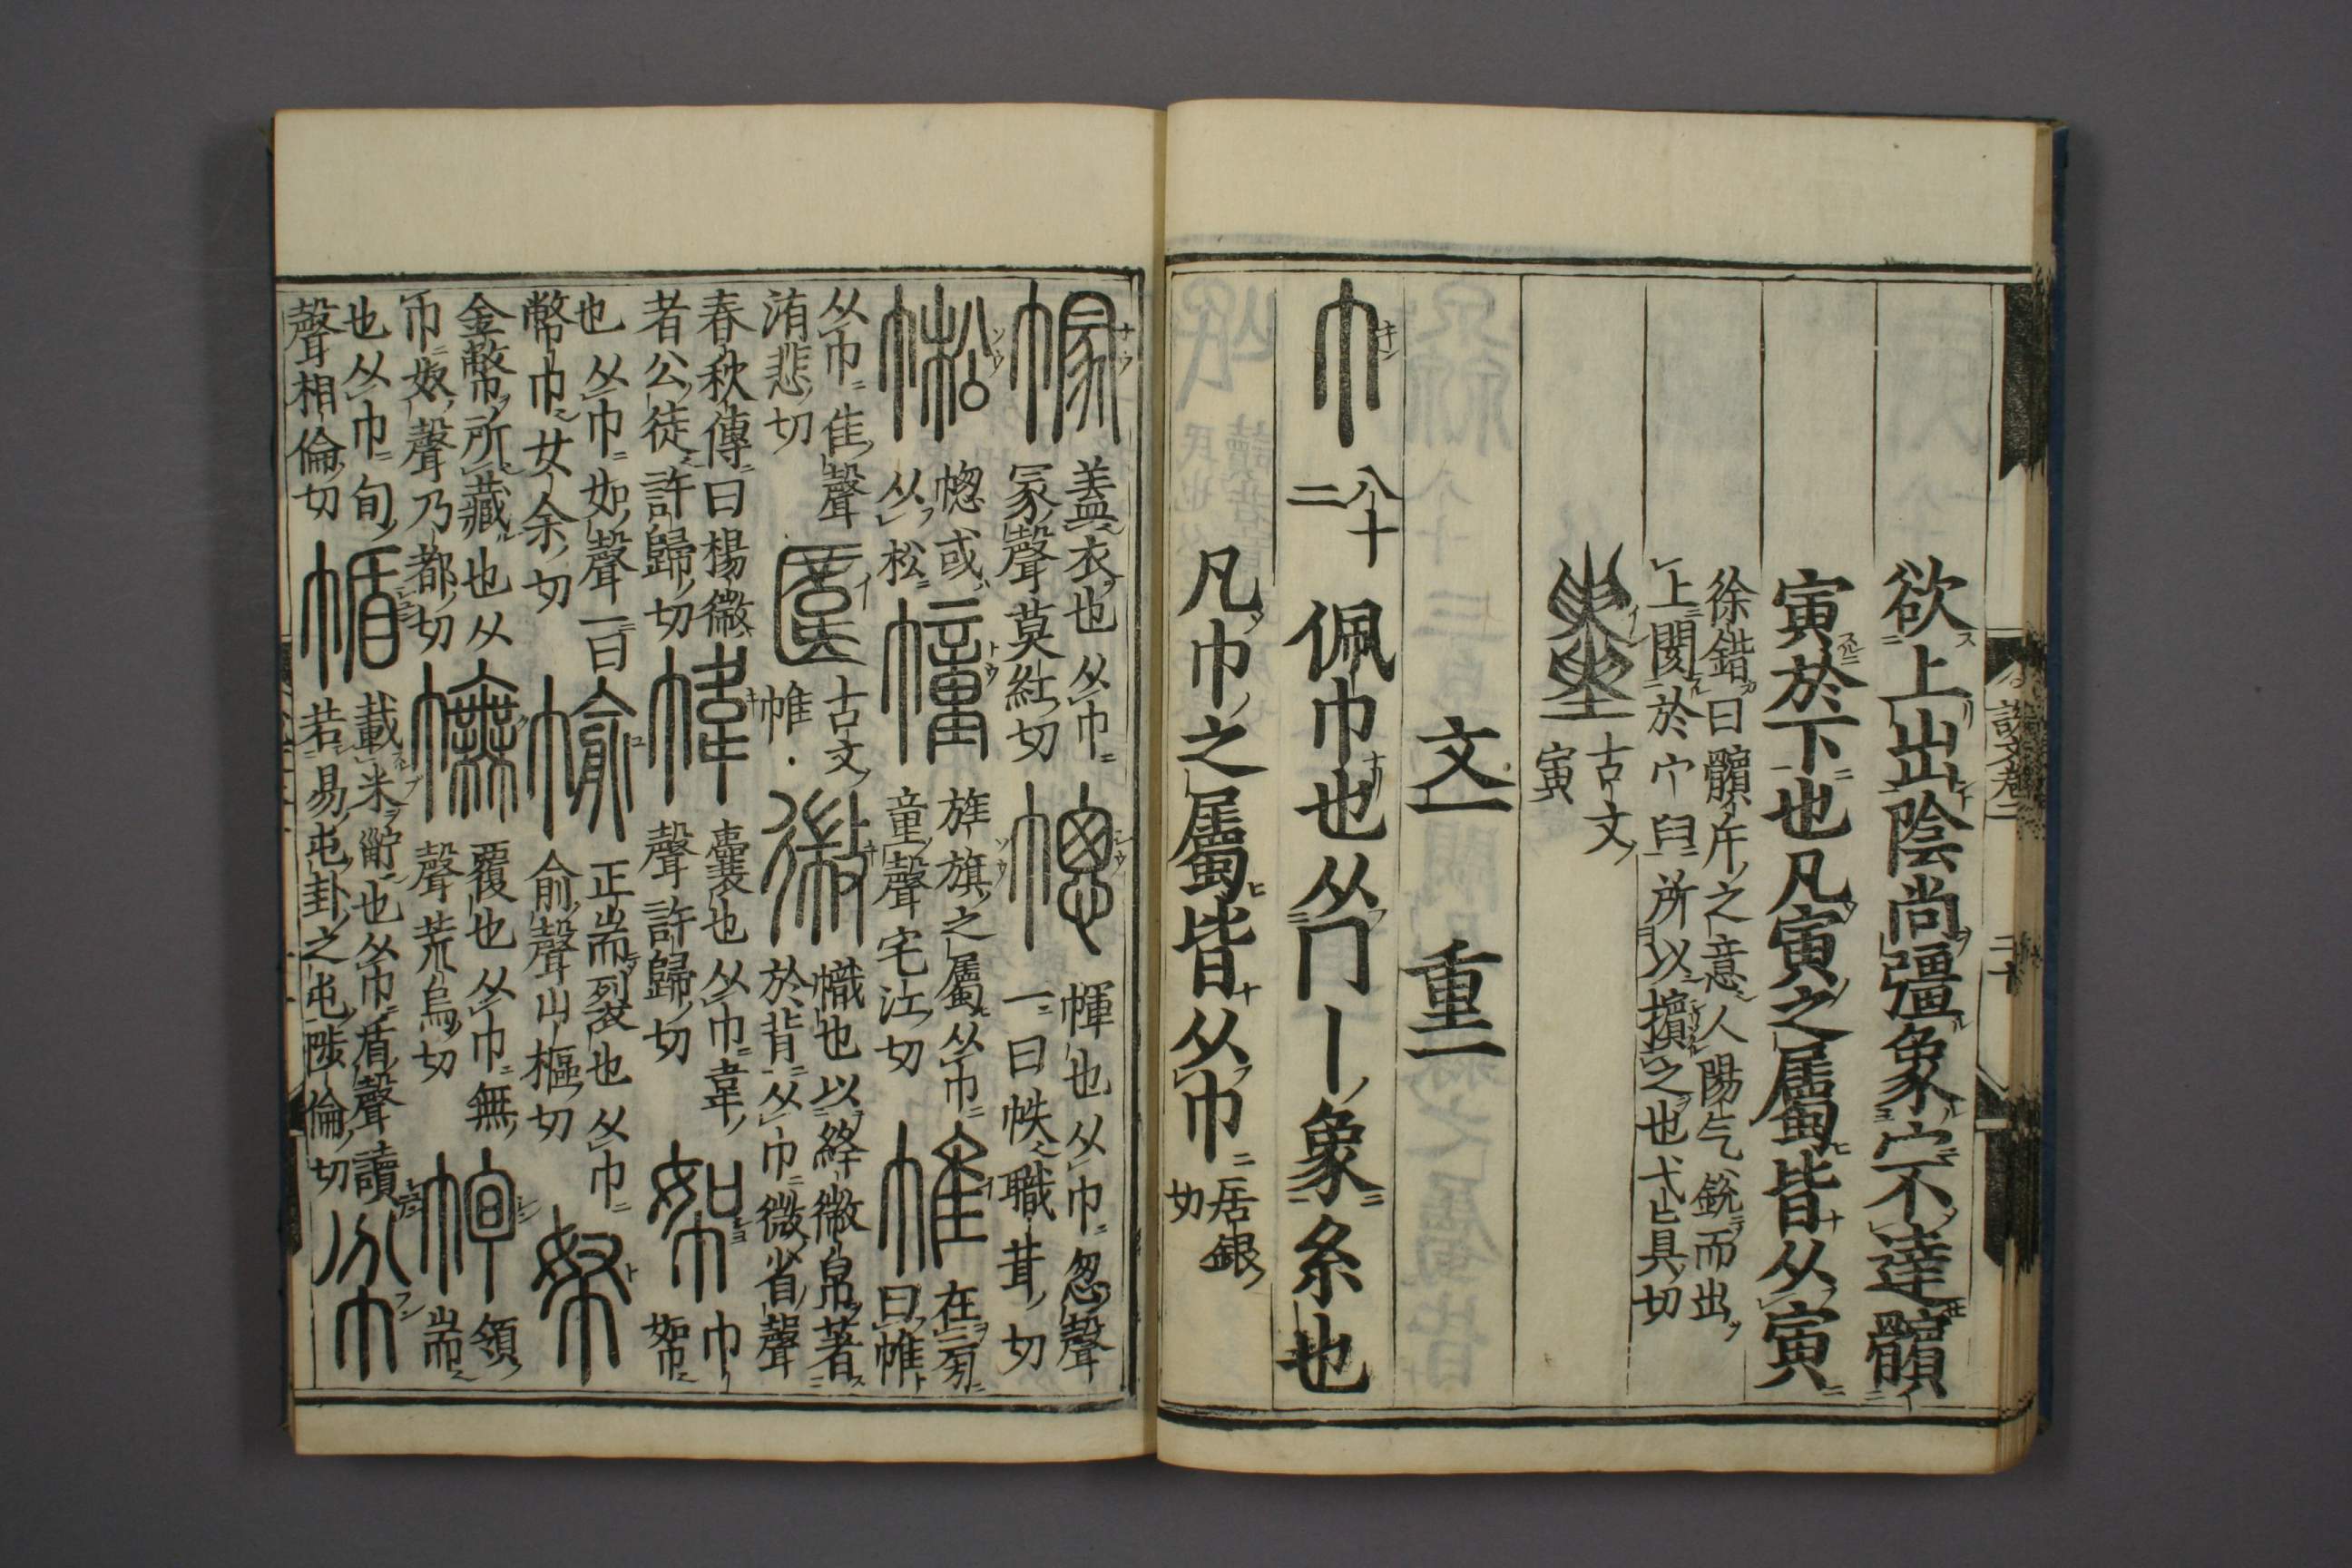 欲上出陰尚彊象宀不達髕
寅於下也凡寅之屬皆从寅
徐鍇曰髕斥之意人陽气銳而出
上閡於宀臼所以擯之也弋真切
古文
寅
文一 重一
巾 八十二 佩巾也从冂丨象糸也
凡巾之屬皆从巾 居銀切
說文卷二
二十
幏 蓋衣也从巾
冡聲莫紅切
幒 㡓也从巾怱聲
一曰帙職茸切
㡆 幒或
从松
幢 旌旗之屬从巾
童聲宅江切
帷 在㫄曰帷
从巾隹聲
洧悲切
古文
帷
幑 幟也以絳幑帛著
於背从巾微省聲
春秋傳曰楊幑
者公徒許歸切
幃 囊也从巾韋
聲許歸切
帤 巾帤
也从巾如聲一曰
幣巾女余切
㡏 正耑裂也从巾
俞聲山樞切
帑
金幣所藏也从
巾奴聲乃都切
幠 覆也从巾無
聲荒烏切
領耑
也从巾旬
聲相倫切
㡒 載米䉛也从巾盾聲讀
若易屯卦之屯陟倫切
帉